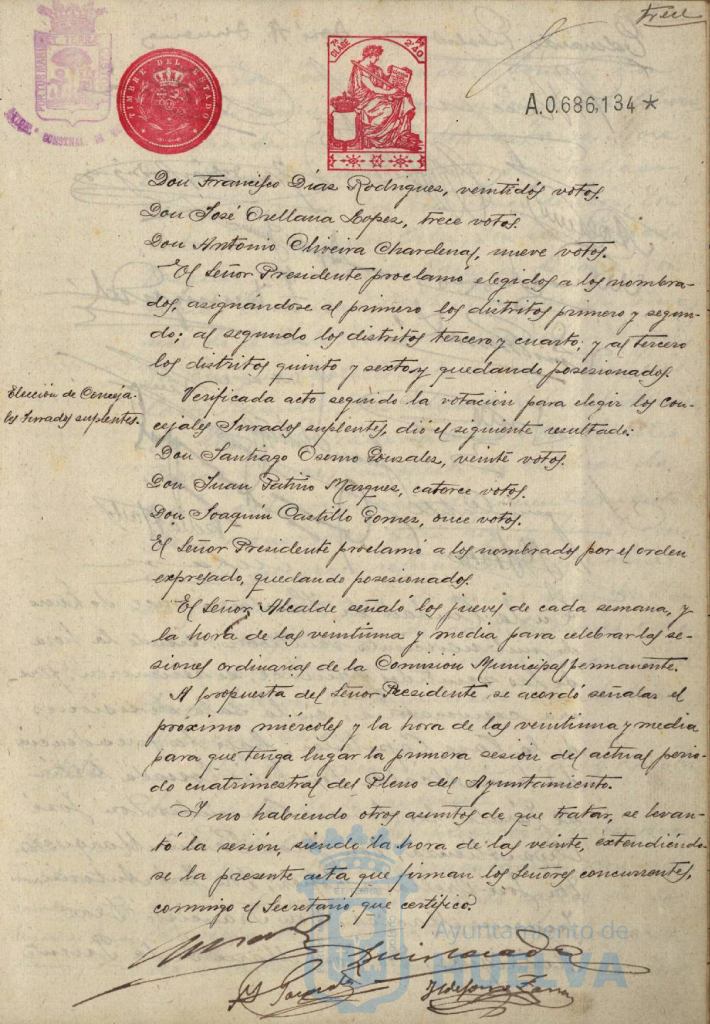 7ª CLASE
Pts 2'40
TIMBRE DEL ESTADO
A.0.686,134 *
Don Francisco Dias Rodrigues, veintidós votos.
Don José Orellana Lopez, trece votos.
Don Antonio Oliveira Chardenal, nueve votos.
El Señor Presidente proclamó elegidos a los nombra-
dos, asignándose al primero los distritos primero y segun-
do; al segundo los distritos tercero y cuarto; y al tercero
los distritos quinto y sexto y quedando posesionados.
Elección de Conceja-
les Jurados suplentes.
Verificada acto seguido la votación para elegir los Con-
cejales Jurados suplentes, dió el siguiente resultado:
Don Santiago Osorno Gonzales, veinte votos.
Don Juan Patiño Marquez, catorce votos.
Don Joaquín Castillo Gomez, once votos.
El Señor Presidente proclamó a los nombrados por el orden
expresado, quedando posesionados.
El Señor Alcalde señaló los jueves de cada semana, y
la hora de las veintiuna y media para celebrar las se-
siones ordinarias de la Comisión Municipal permanente.
A propuesta del Señor Presidente se acordó señalar el
próximo miércoles y la hora de las veintiuna y media
para que tenga lugar la primera sesión del actual perio-
do cuatrimestral del Pleno del Ayuntamiento.
Y no habiendo otros asuntos de que tratar, se levan-
tó la sesión, siendo la hora de las veinte, extendiéndo-
se la presente acta que firman los Señores concurrentes,
conmigo el Secretario que certifico.
Ayuntamiento de
HUELVA